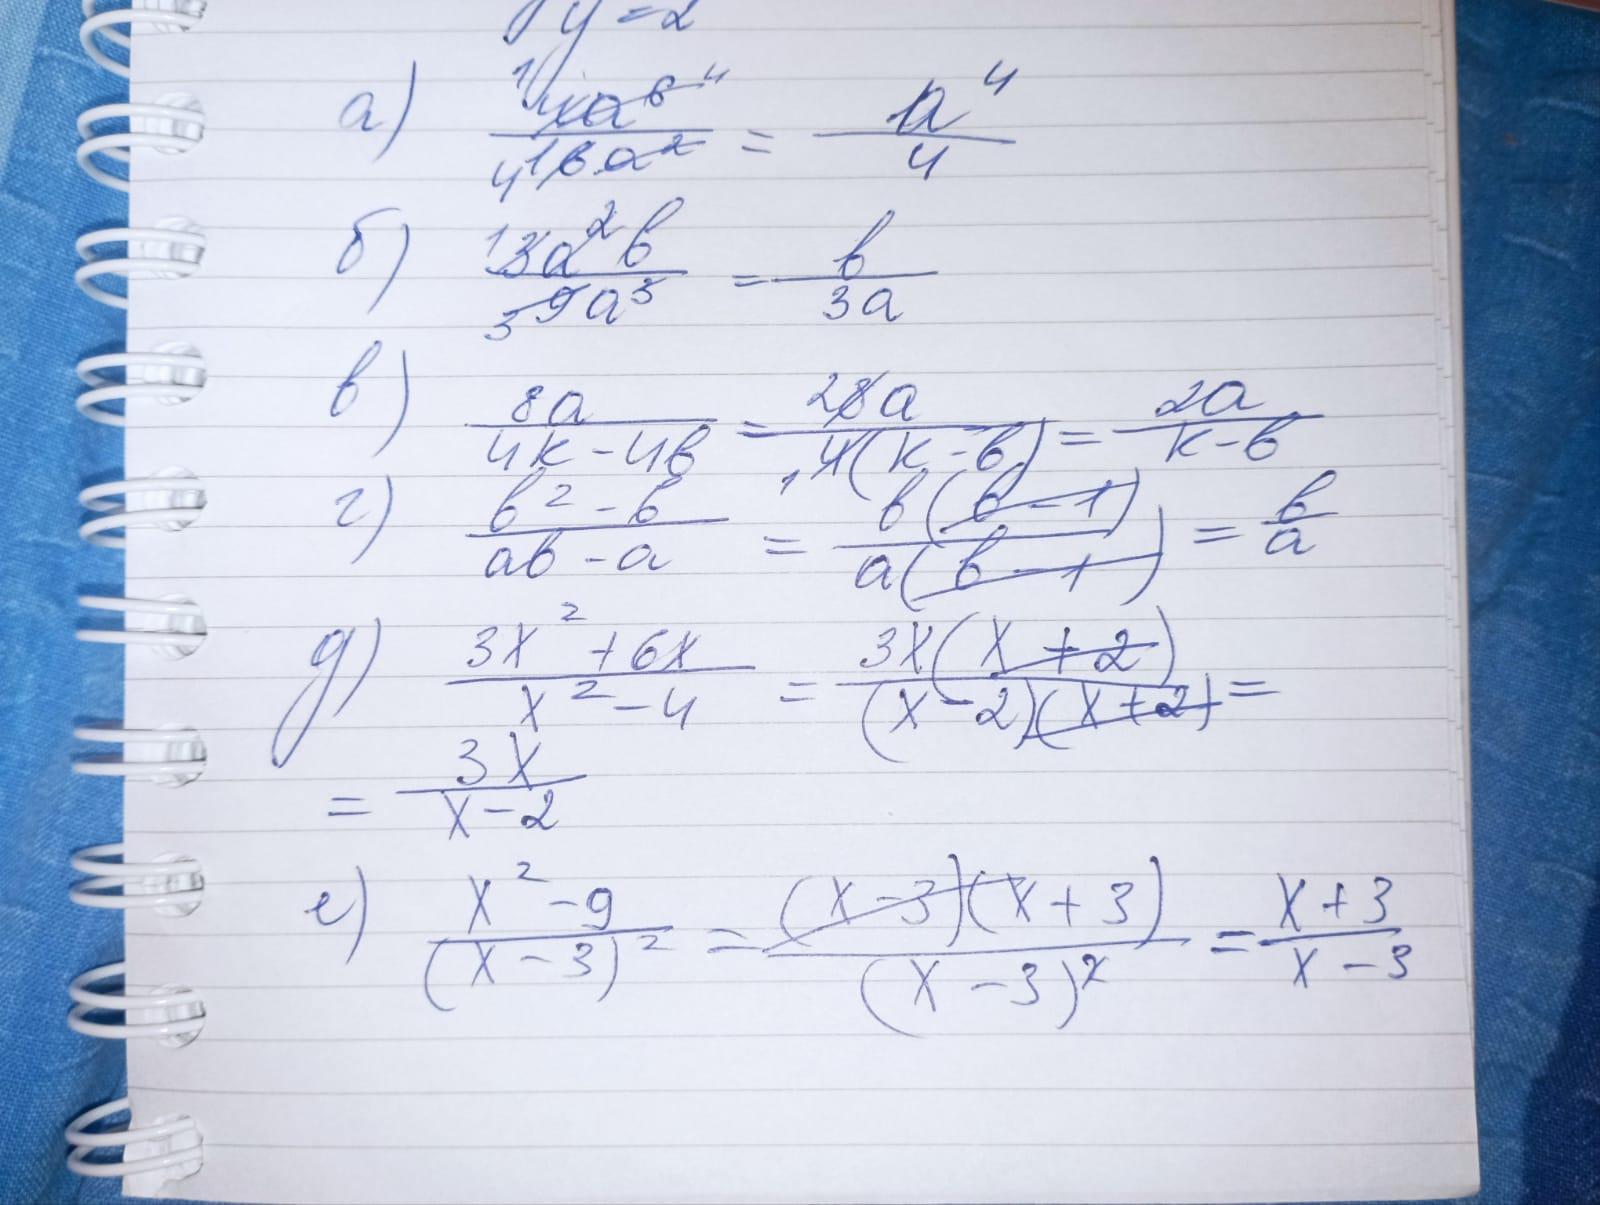 y = 2
а) 4a⁶ / 16a² = a⁴ / 4
б) 3a²b / 9a³ = b / 3a
в) 8a / 4k - 4b = 8a / 4(k - b) = 2a / k - b
г) b² - b / ab - a = b(b - 1) / a(b - 1) = b / a
д) 3x² + 6x / x² - 4 = 3x(x + 2) / (x - 2)(x + 2) =
= 3x / x - 2
е) x² - 9 / (x - 3)² = (x - 3)(x + 3) / (x - 3)² = x + 3 / x - 3